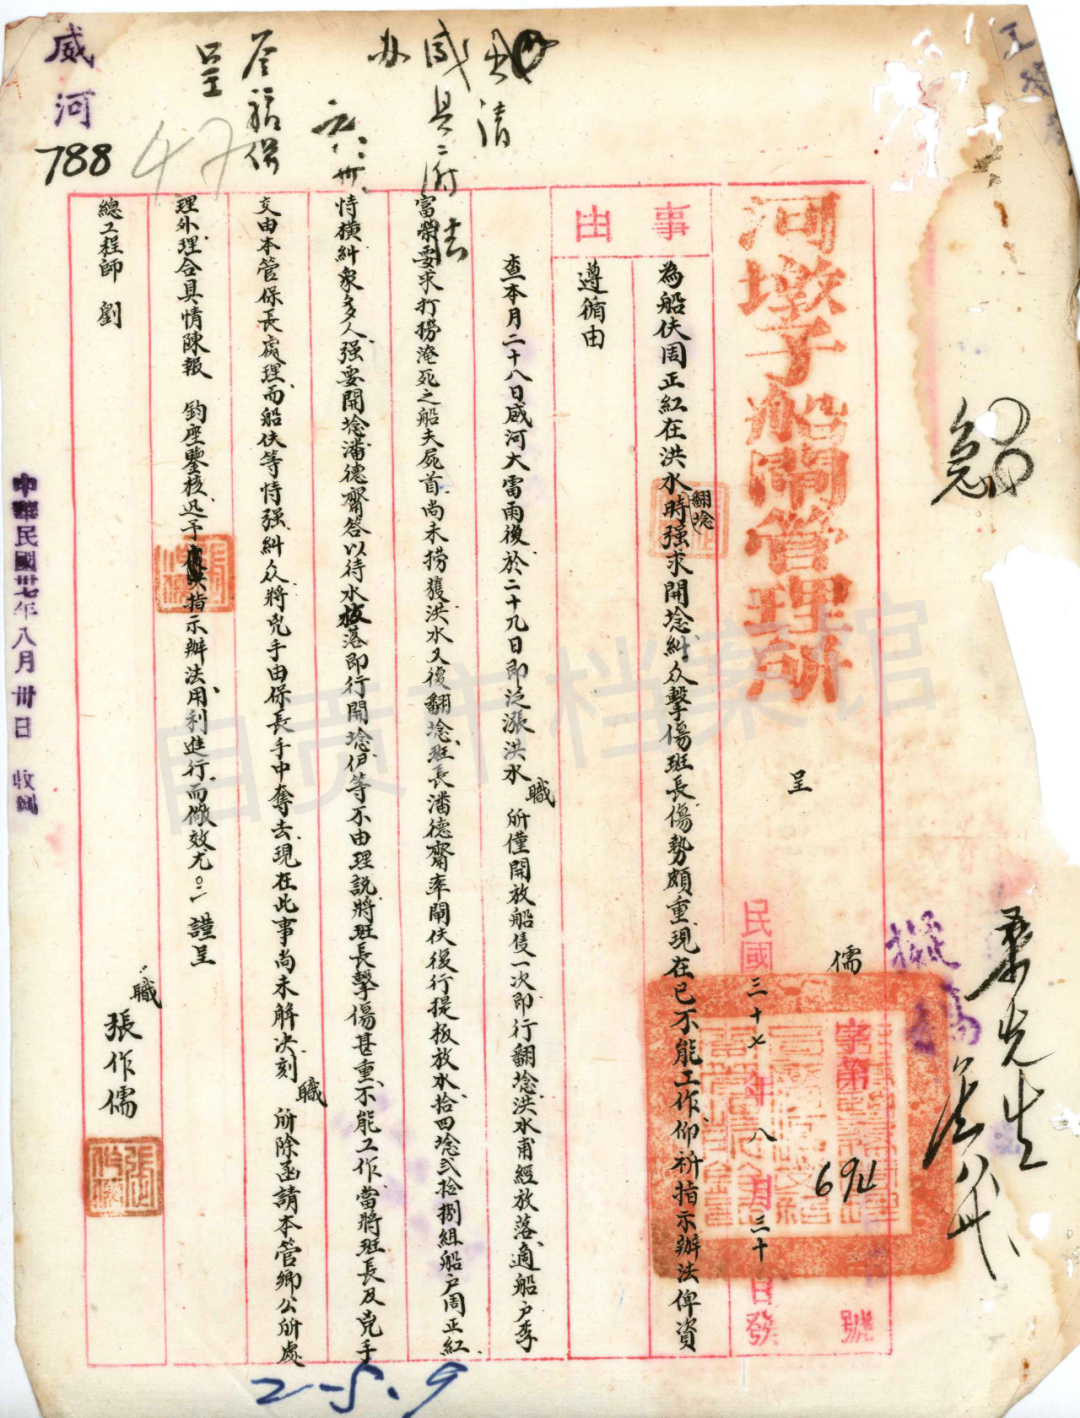 河墩子船閘管理所
呈
儒字第694號
民國三十七年八月三十日發
事由
為船伕周正紅在洪水翻埝時强求開埝糾众擊傷班長傷勢頗重現在已不能工作仰祈指示辦法俾資
遵循由
查本月二十八日威河大雷雨後於二十九日即泛漲洪水職所僅開放船隻一次即行翻埝洪水甫經放落適船户李
富榮要求打撈淹死之船夫屍首尚未撈獲洪水又復翻埝班長潘德齋率閘伕復行提板放水拾四埝貳拾捌組船户周正紅
恃横糾眾多人强要開埝潘德齋答以待水板落即行開埝伊等不由理説將班長擊傷甚重不能工作當將班長及兇手
交由本管保長處理而船伕等恃强糾众將兇手由保長手中奪去現在此事尚未解决刻職所除函請本管鄉公所處
理外理合具情陳報 鈞座鑒核迅予指示辦法用利進行而儆效尤 謹呈
總工程師 劉
職 張作儒
威河
788
47
中華民國卅七年八月卅日 收到
急
擬
2-5.9
自贡市档案馆